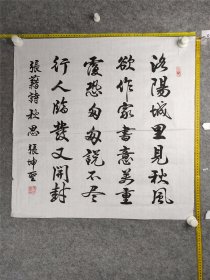 洛陽城里見秋風
欲作家書意萬重
復恐匆匆說不盡
行人臨發又開封
張籍詩秋思 張坤